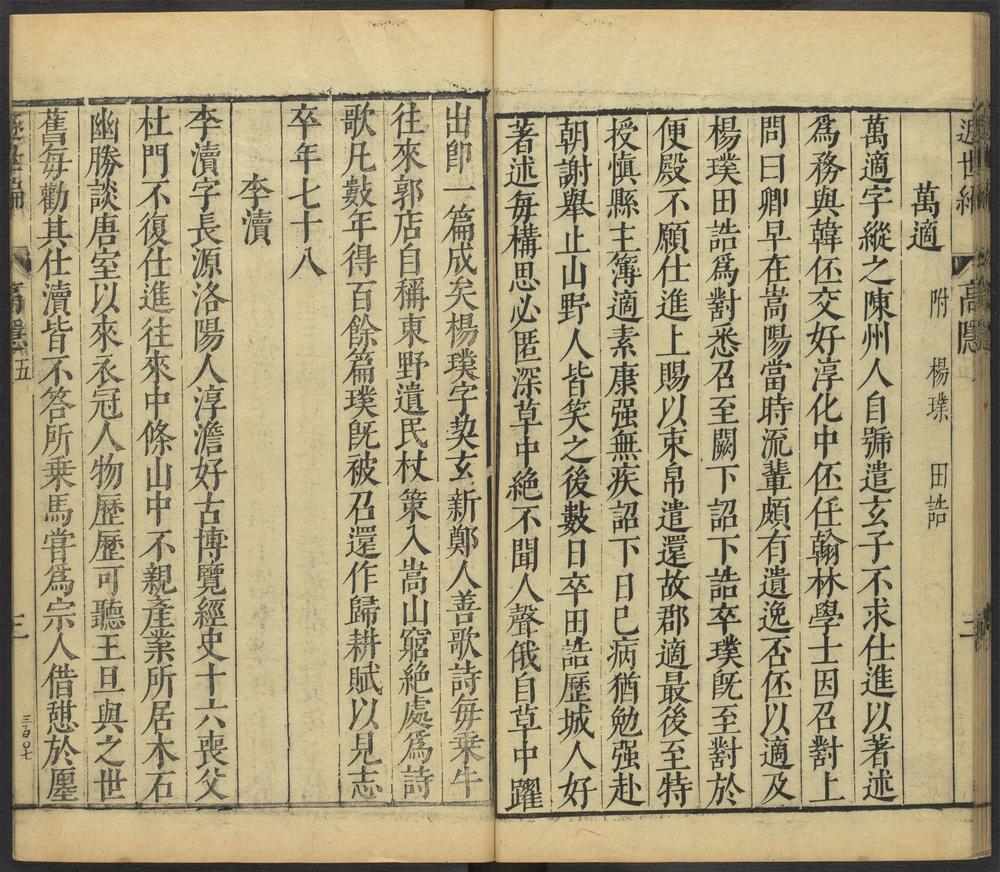 逃世編 高隱五 二
萬適 附 楊璞 田誥
萬適字縱之陳州人自號遣玄子不求仕進以著述
爲務與韓伾交好淳化中伾任翰林學士因召對上
問曰卿早在嵩陽當時流輩頗有遺逸否伾以適及
楊璞田誥爲對悉召至闕下詔下誥卒璞旣至對於
便殿不願仕進上賜以束帛遣還故郡適最後至特
授愼縣主簿適素康强無疾詔下日巳病猶勉强赴
朝謝舉止山野人皆笑之後數日卒田誥歷城人好
著述每構思必匿深草中絶不聞人聲俄自草中躍
出卽一篇成矣楊璞字契玄新鄭人善歌詩每乗牛
往來郭店自稱東野遺民杖策入嵩山窮絶處爲詩
歌凡數年得百餘篇璞旣被召還作歸耕賦以見志
卒年七十八
李瀆
李瀆字長源洛陽人淳澹好古博覽經史十六喪父
杜門不復仕進往來中條山中不親產業所居木石
幽勝談唐室以來衣冠人物歷歷可聽王旦與之世
舊每勸其仕瀆皆不答所乗馬嘗爲宗人借憩於廛
逃世編 高隱五 三 三百〇七